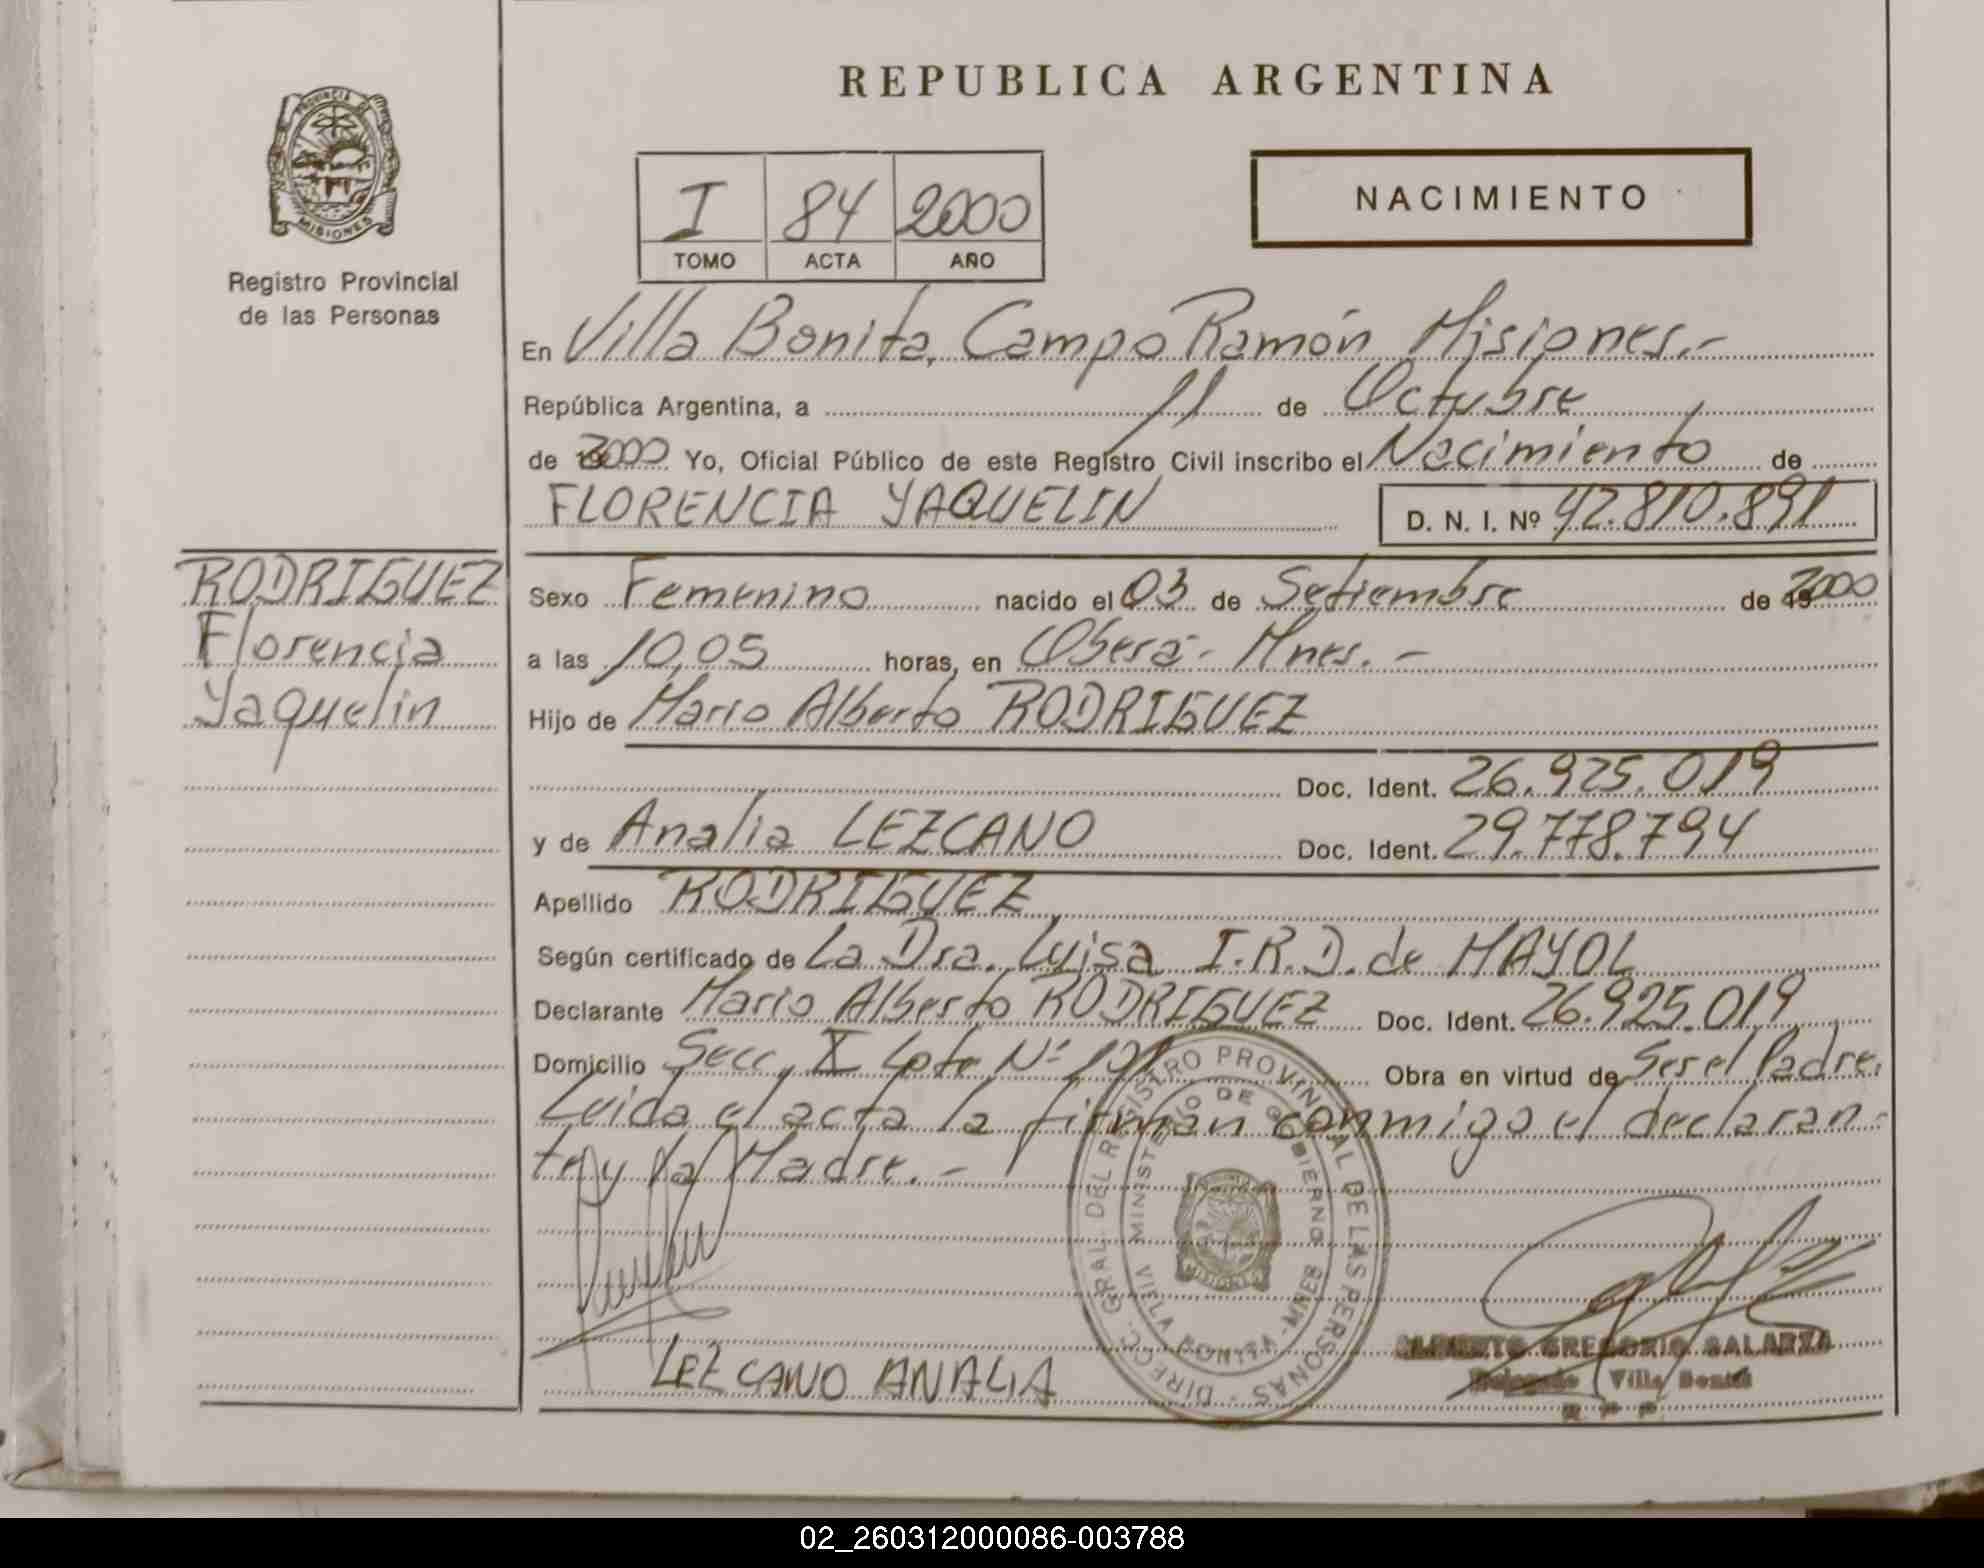 REPUBLICA ARGENTINA
PROVINCIA DE MISIONES
Registro Provincial
de las Personas
I 84 2000
TOMO ACTA AÑO
NACIMIENTO
En Villa Bonita, Campo Ramón Misiones.-
República Argentina, a 11 de Octubre
de 2000 Yo, Oficial Público de este Registro Civil inscribo el Nacimiento de
FLORENCIA YAQUELIN D. N. I. Nº 42.810.891
RODRIGUEZ
Florencia
Yaquelin
Sexo Femenino nacido el 03 de Setiembre de 2000
a las 10,05 horas, en Oberá - Mnes. -
Hijo de Mario Alberto RODRIGUEZ
Doc. Ident. 26.925.019
y de Analia LEZCANO Doc. Ident. 29.778.794
Apellido RODRIGUEZ
Según certificado de La Dra. Luisa I.R.D. de MAYOL
Declarante Mario Alberto RODRIGUEZ Doc. Ident. 26.925.019
Domicilio Secc. X Lote Nº 121 Obra en virtud de Ser el Padre.
Leida el acta la firman conmigo el declaran-
te y la Madre. -
DIRECC. GRAL. DEL REGISTRO PROVINCIAL DE LAS PERSONAS -
MINISTERIO DE GOBIERNO
VILLA BONITA - MNES
LEZCANO ANALIA
ALBERTO GREGORIO SALARZA
Delegado Villa Bonita
R P P
02_260312000086-003788